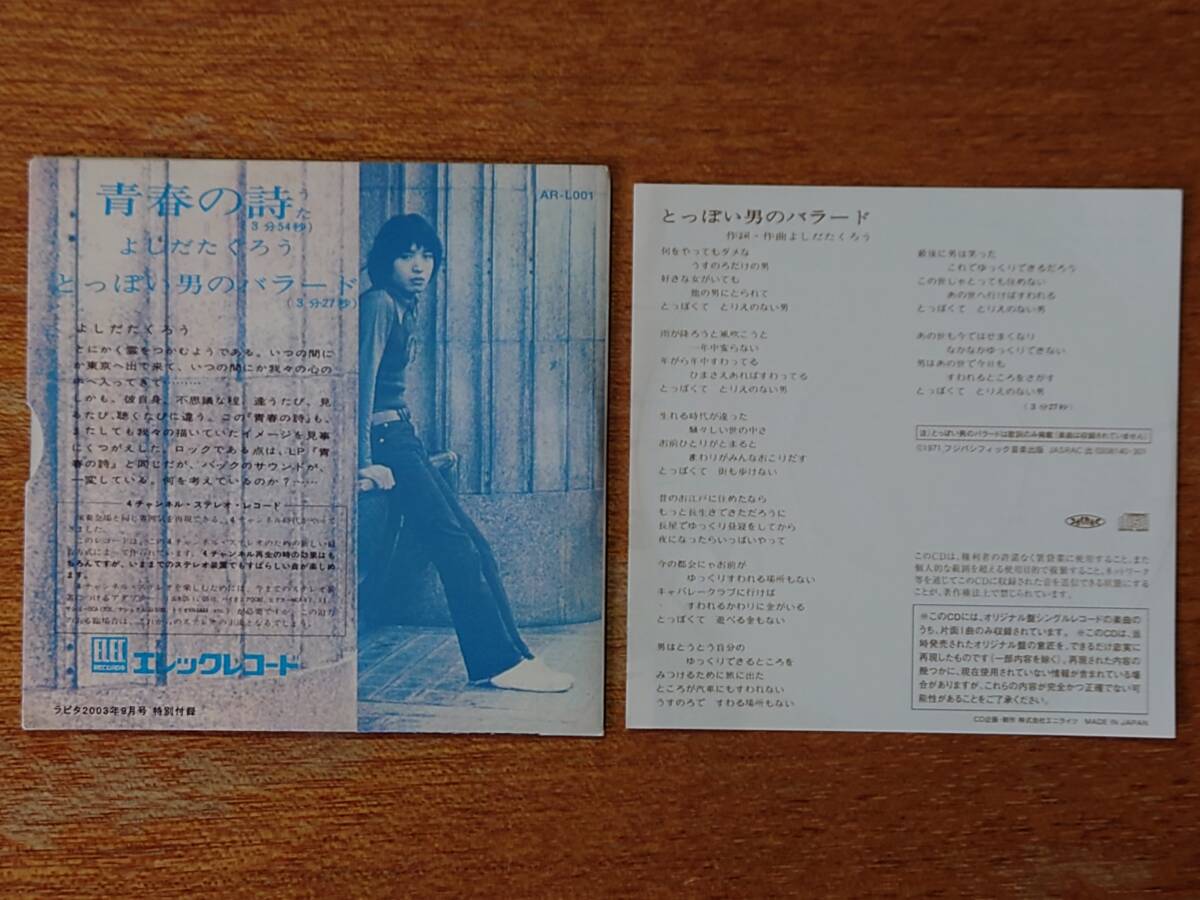 青春の詩
うた
(3分54秒)
よしだたくろう
とっぽい男のバラード
(3分27秒)
AR-L001
よしだたくろう
とにかく雲をつかむようである。いつの間に
か東京へ出て来て、いつの間にか我々の心の
中へ入ってきて………
しかも。彼自身、不思議な程、逢うたび、見
るたび、聴くたびに違う。この『青春の詩』も、
またしても我々の描いていたイメージを見事
にくつがえした。ロックである点は、LP『青
春の詩』と同じだが、バックのサウンドが、
一変している。何を考えているのか？……
4チャンネル・ステレオ・レコード
演奏会場と同じ雰囲気を再現できる、4チャンネル時代がやって
きました。
このレコードは、この4チャンネル・ステレオのための新しい録
音方式によって作られています。4チャンネル再生の時の効果はも
ちろんですが、いままでのステレオ装置でもすばらしい音が楽しめ
ます。
4チャンネル・ステレオを楽しむためには、今までのステレオ装
ELEC
RECORDS
エレックレコード
ラピタ2003年9月号 特別付録
とっぽい男のバラード
作詞・作曲よしだたくろう
何をやってもダメな
うすのろだけの男
好きな女がいても
他の男にとられて
とっぽくて とりえのない男
雨が降ろうと風吹こうと
一年中変らない
年がら年中すわってる
ひまさえあればすわってる
とっぽくて とりえのない男
生れる時代が違った
騒々しい世の中さ
お前ひとりがとまると
まわりがみんなおこりだす
とっぽくて 街も歩けない
昔のお江戸に住めたなら
もっと長生きできただろうに
長屋でゆっくり昼寝をしてから
夜になったらいっぱいやって
今の都会にゃお前が
ゆっくりすわれる場所もない
キャバレークラブに行けば
すわれるかわりに金がいる
とっぽくて 遊べる金もない
男はとうとう自分の
ゆっくりできるところを
みつけるために旅に出た
ところが汽車にもすわれない
うすのろで すわる場所もない
最後に男は笑った
これでゆっくりできるだろう
この世じゃとっても住めない
あの世へ行けばすわれる
とっぽくて とりえのない男
あの世も今ではせまくなり
なかなかゆっくりできない
男はあの世で今日も
すわれるところをさがす
とっぽくて とりえのない男
(3分27秒)
注)とっぽい男のバラードは歌詞のみ掲載(楽曲は収録されていません)
©1971 フジパシフィック音楽出版 JASRAC 出 0308140-301
このCDは、権利者の許諾なく賃貸業に使用すること、また
個人的な範囲を超える使用目的で複製すること、ネットワーク
等を通じてこのCDに収録された音を送信できる状態にする
ことが、著作権法上で禁じられています。
※このCDには、オリジナル盤シングルレコードの楽曲の
うち、片面1曲のみ収録されています。 ※このCDは、当
時発売されたオリジナル盤の意匠を、できるだけ忠実に
再現したものです(一部内容を除く)。再現された内容の
幾つかに、現在使用されていない情報が含まれている場
合がありますが、これらの内容が完全かつ正確でない可
能性があることをご了承ください。
CD企画・制作 株式会社エニライツ MADE IN JAPAN